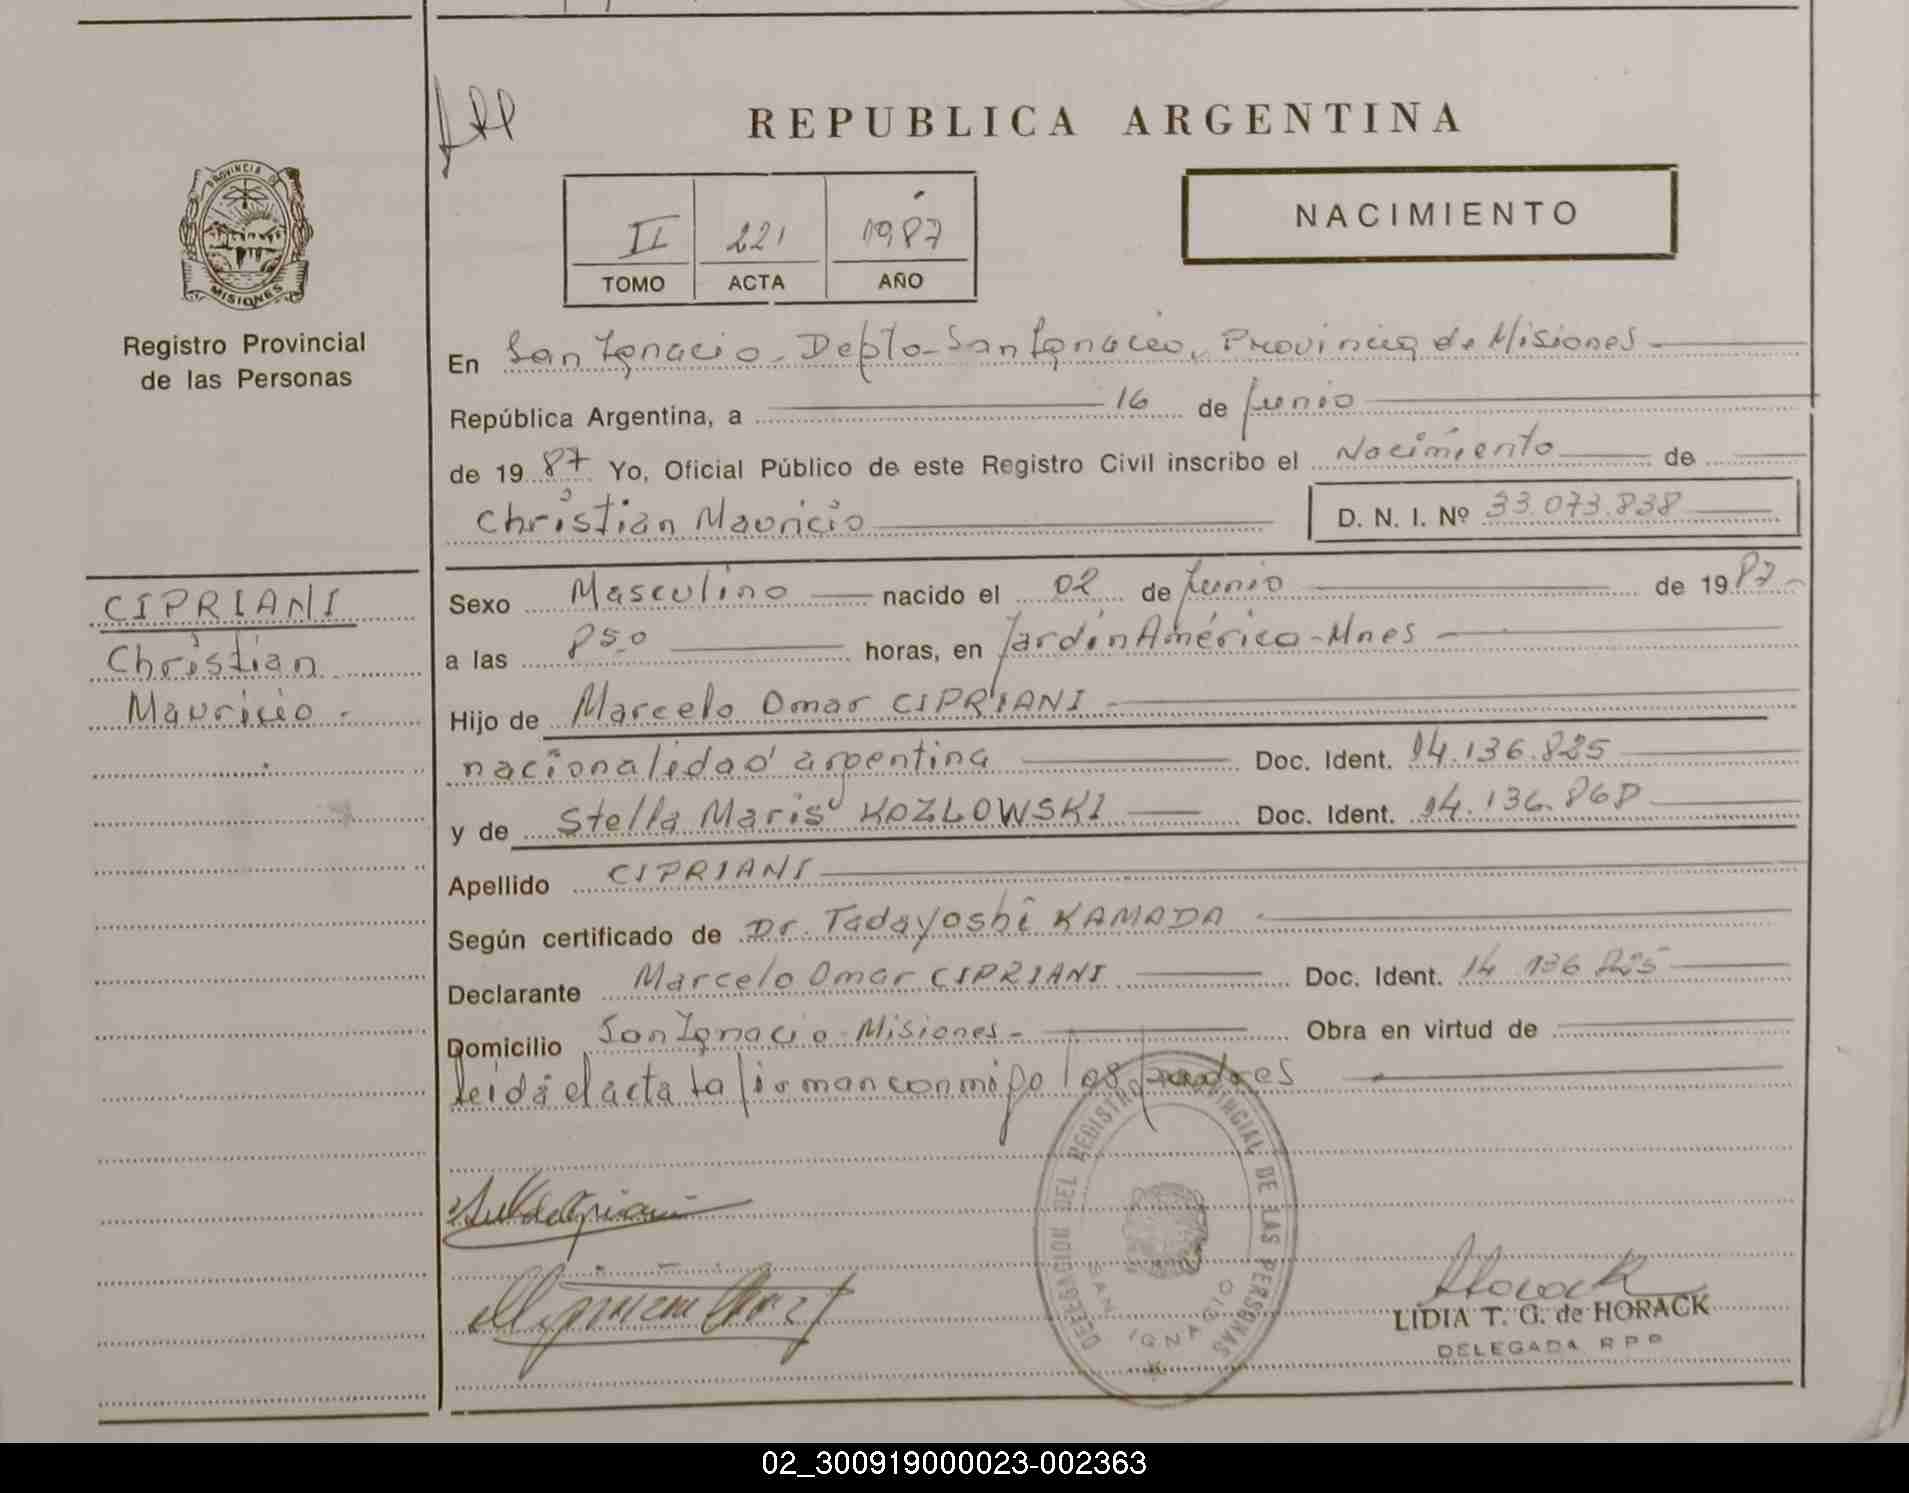 REPUBLICA ARGENTINA
PROVINCIA DE MISIONES
Registro Provincial
de las Personas
II 221 1987
TOMO ACTA AÑO
NACIMIENTO
En San Ignacio - Depto - San Ignacio, Provincia de Misiones
República Argentina, a 16 de Junio
de 1987 Yo, Oficial Público de este Registro Civil inscribo el Nacimiento de
Christian Mauricio D. N. I. Nº 33.073.838
CIPRIANI
Christian
Mauricio -
Sexo Masculino nacido el 02 de Junio de 1987
a las 850 horas, en Jardín América - Mnes
Hijo de Marcelo Omar CIPRIANI
nacionalidad argentina Doc. Ident. 14.136.825
y de Stella Maris KOZLOWSKI Doc. Ident. 14.136.868
Apellido CIPRIANI
Según certificado de Dr. Tadayoshi KAMADA
Declarante Marcelo Omar CIPRIANI Doc. Ident. 14 136 825
Domicilio San Ignacio - Misiones - Obra en virtud de
leida el acta la firman conmigo los padres
DELEGACION DEL REGISTRO PROVINCIAL DE LAS PERSONAS
SAN IGNACIO
Horack
LIDIA T. G. de HORACK
DELEGADA R P P
02_300919000023-002363